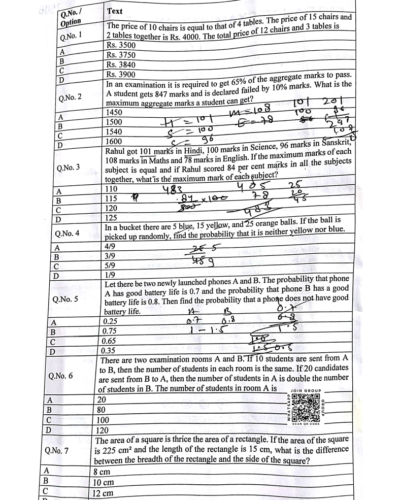 Q.No./ Text
Option
Q.No. 1 The price of 10 chairs is equal to that of 4 tables. The price of 15 chairs and
2 tables together is Rs. 4000. The total price of 12 chairs and 3 tables is
A Rs. 3500
B Rs. 3750
C Rs. 3840
D Rs. 3900
Q.No. 2 In an examination it is required to get 65% of the aggregate marks to pass.
A student gets 847 marks and is declared failed by 10% marks. What is the
maximum aggregate marks a student can get?
A 1450
B 1500
C 1540
D 1600
H = 101 m = 108 101 201
S = 100 E = 78
S = 96
Q.No. 3 Rahul got 101 marks in Hindi, 100 marks in Science, 96 marks in Sanskrit,
108 marks in Maths and 78 marks in English. If the maximum marks of each
subject is equal and if Rahul scored 84 per cent marks in all the subjects
together, what is the maximum mark of each subject?
A 110
B 115
C 120
D 125
483 485 25
Q.No. 4 In a bucket there are 5 blue, 15 yellow, and 25 orange balls. If the ball is
picked up randomly, find the probability that it is neither yellow nor blue.
A 4/9
B 3/9
C 5/9
D 1/9
Q.No. 5 Let there be two newly launched phones A and B. The probability that phone
A has good battery life is 0.7 and the probability that phone B has a good
battery life is 0.8. Then find the probability that a phone does not have good
battery life.
A 0.25
B 0.75
C 0.65
D 0.35
A B 0.7
0.7 0.8 0.8
1 - 1.5 1.5
Q.No. 6 There are two examination rooms A and B. If 10 students are sent from A
to B, then the number of students in each room is the same. If 20 candidates
are sent from B to A, then the number of students in A is double the number
of students in B. The number of students in room A is
A 20
B 80
C 100
D 120
JOIN GROUP
Q.No. 7 The area of a square is thrice the area of a rectangle. If the area of the square
is 225 cm² and the length of the rectangle is 15 cm, what is the difference
between the breadth of the rectangle and the side of the square?
A 8 cm
B 10 cm
C 12 cm